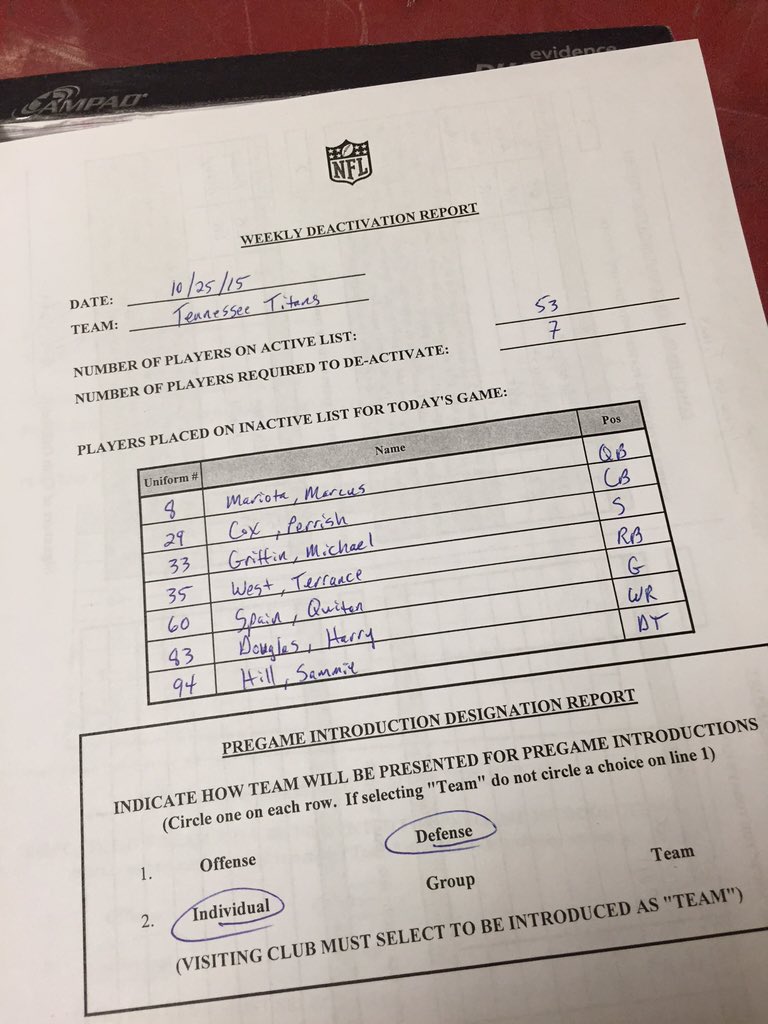 AMPAD
evidence
NFL
WEEKLY DEACTIVATION REPORT
DATE: 10/25/15
TEAM: Tennessee Titans
NUMBER OF PLAYERS ON ACTIVE LIST: 53
NUMBER OF PLAYERS REQUIRED TO DE-ACTIVATE: 7
PLAYERS PLACED ON INACTIVE LIST FOR TODAY'S GAME:
Uniform # Name Pos
8 Mariota, Marcus QB
29 Cox, Perrish CB
33 Griffin, Michael S
35 West, Terrance RB
60 Spain, Quiton G
83 Douglas, Harry WR
94 Hill, Sammie DT
PREGAME INTRODUCTION DESIGNATION REPORT
INDICATE HOW TEAM WILL BE PRESENTED FOR PREGAME INTRODUCTIONS
(Circle one on each row. If selecting "Team" do not circle a choice on line 1)
1. Offense Defense
2. Individual Group Team
(VISITING CLUB MUST SELECT TO BE INTRODUCED AS "TEAM")